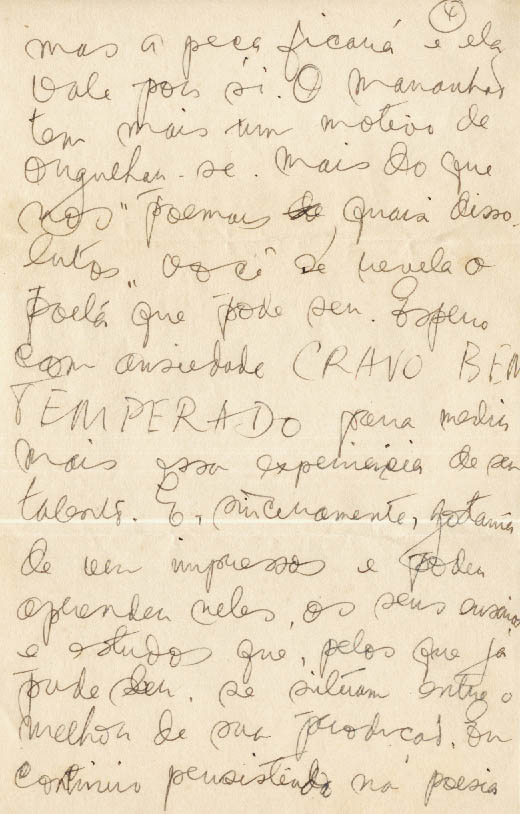 4
mas a peça ficará e ela
vale pois si. O Maranhão
tem mais um motivo de
orgulhar-se. Mais do que
nos "poemas de quasi disso-
lutos" você se revela o
poeta que pode ser. Espero
com ansiedade CRAVO BEM
TEMPERADO para medir
mais essa experiencia de seu
talento. E, sinceramente, gostaria
de ver impressos e poder
aprender neles, os seus ensaios
e estudos que, pelos que já
pude ler, se situam entre o
melhor de sua produção. Eu
continuo persistindo na poesia